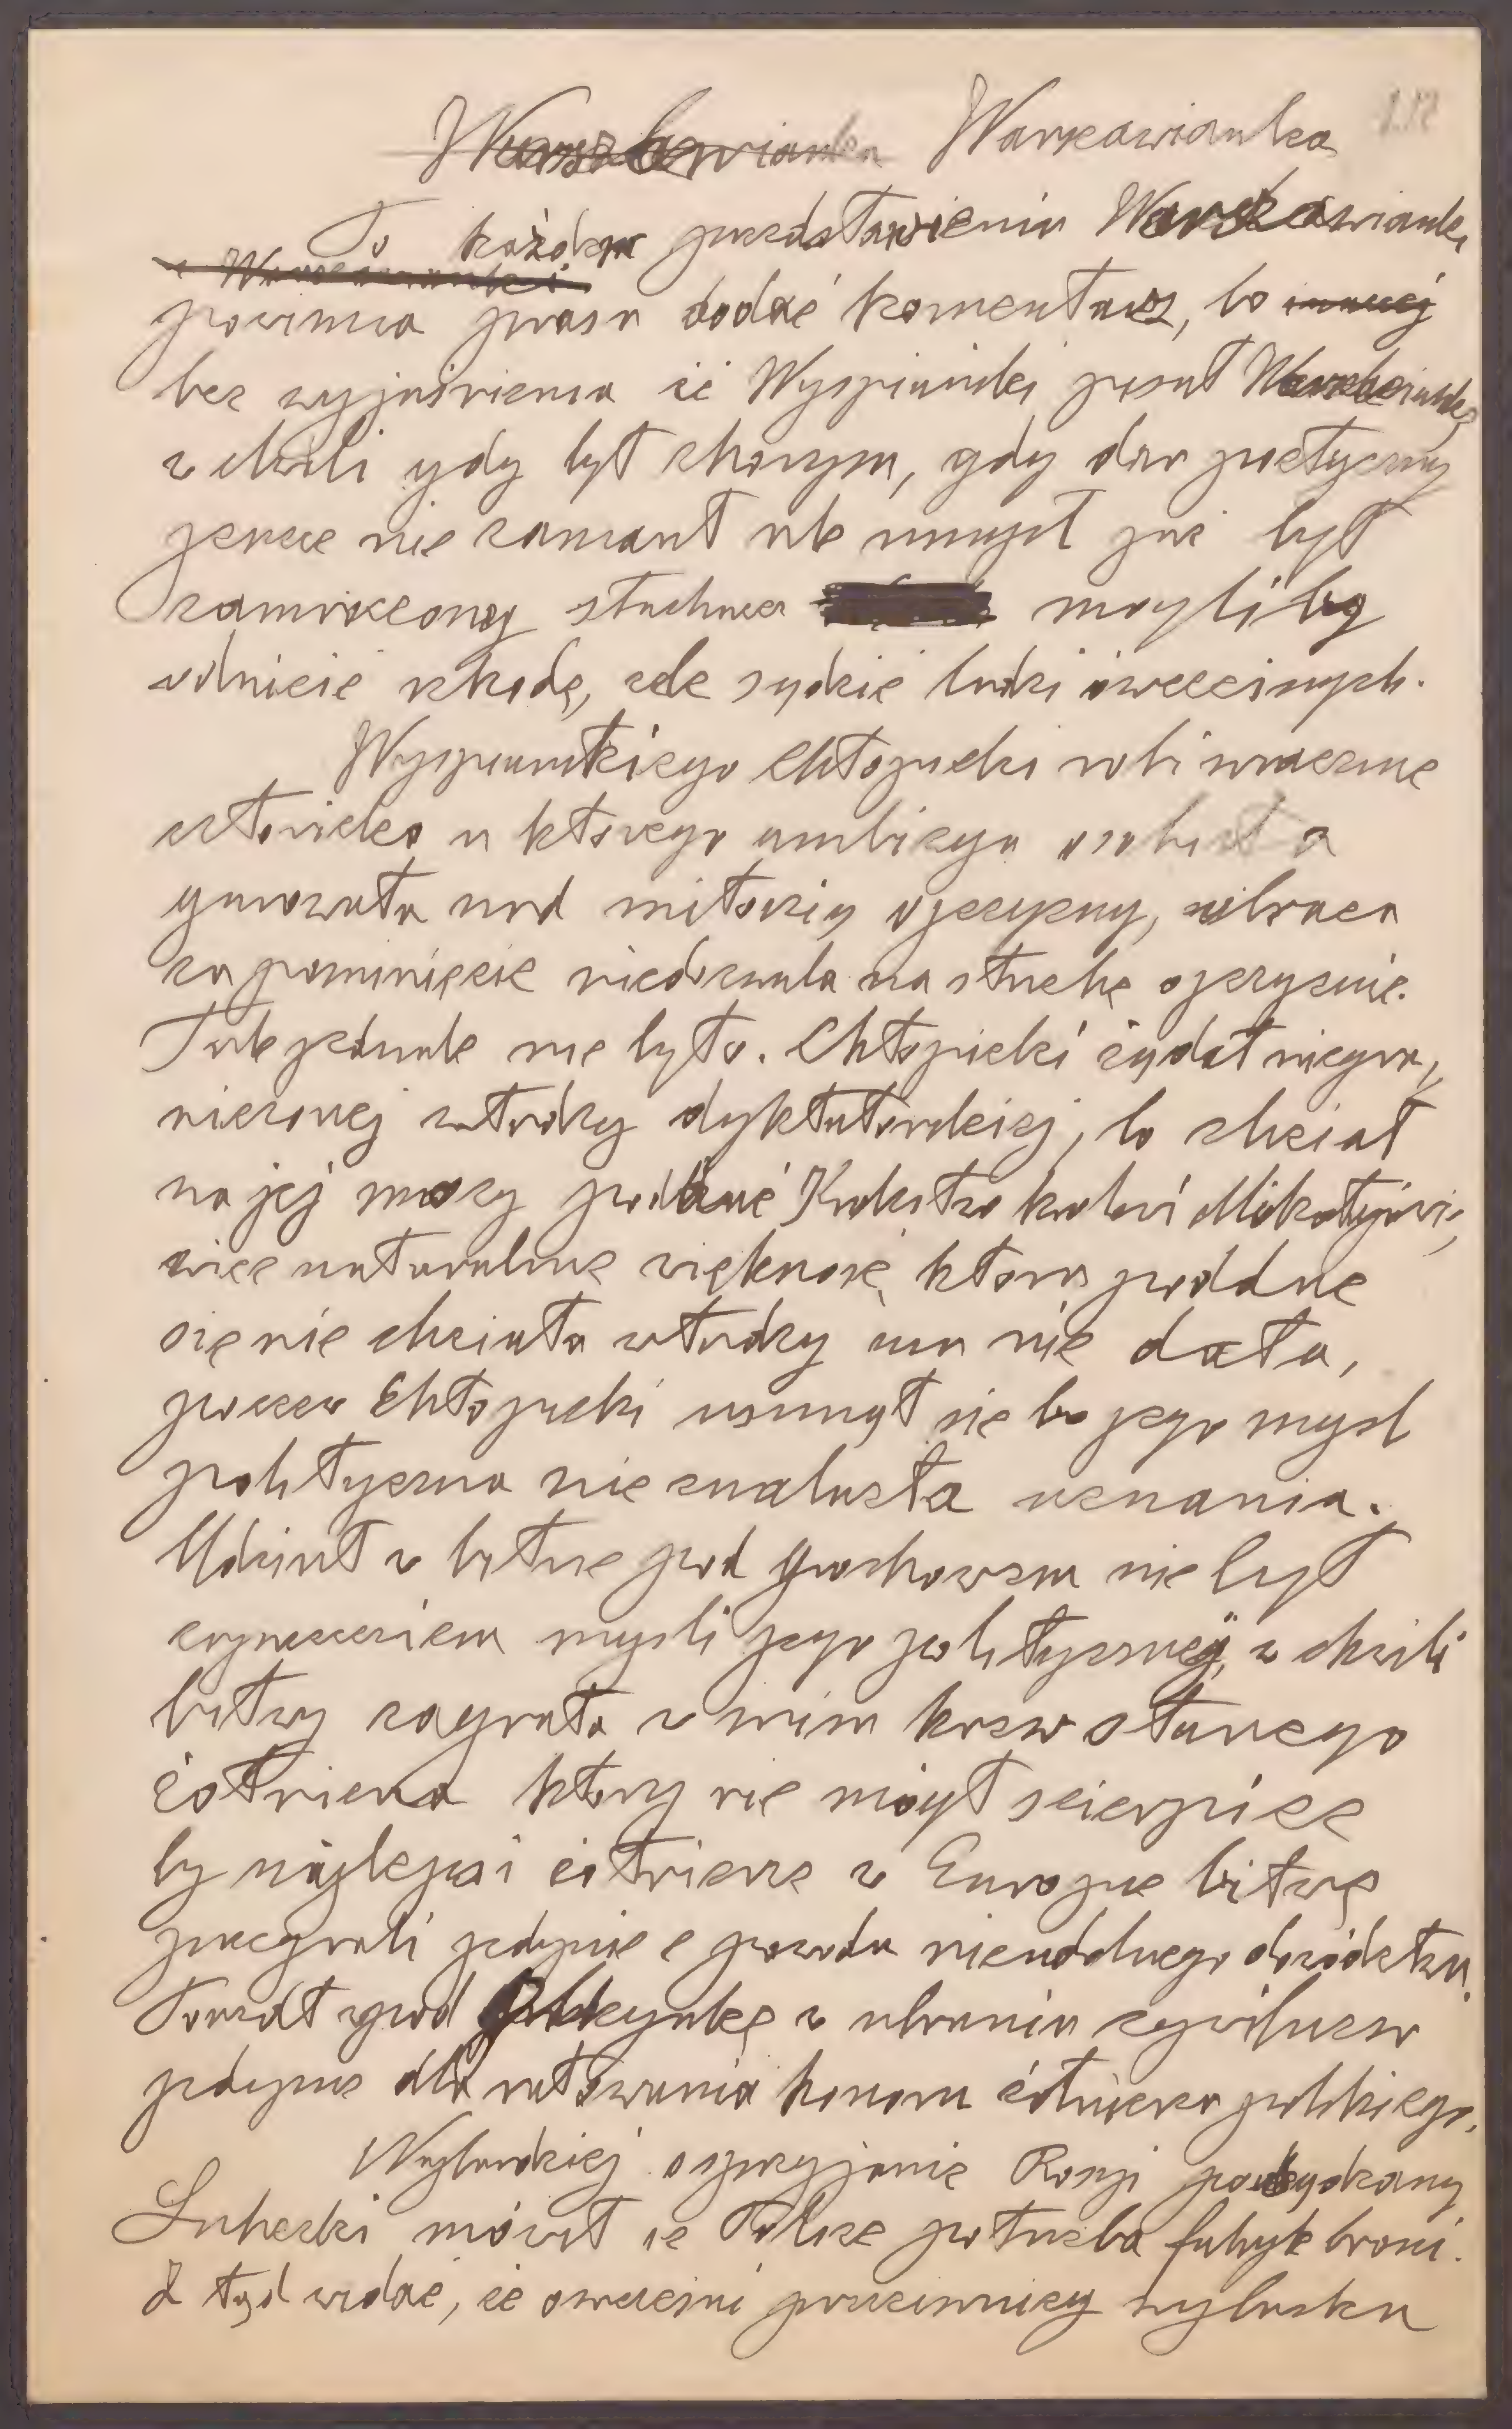 Warszawianka Warszawianka
Po każdem przedstawieniu Warszawianki
powinna prasa dodać komentarz, bo inaczej
bez wyjaśnienia że Wyspiański pisał Warszawiankę
w chwili gdy był chorym, gdy dar poetyczny
jeszcze nie zamarł ale umysł już był
zamroczony słuchacze mogliby
odnieść szkodę, źle sądzić ludzi ówczesnych.
Wyspiańskiego Chłopicki robi wrażenie
człowieka u którego ambicya osobista
górowała nad miłością ojczyzny, obraza
za pominięcie niedozwala na służbę ojczyźnie.
Tak jednak nie było. Chłopicki żądał niegra,
niczonej władzy dyktatorskiej, bo chciał
na jej mocy poddać Królestwo królowi Mikołajowi,
więc naturalnie większość, która poddać
się nie chciała władzy mu nie dała,
poczem Chłopicki usunął się bo jego myśl
polityczna nie znalazła uznania.
Udział w bitwie pod Grochowem nie był
zaprzeczeniem myśli jego politycznej, w chwili
bitwy zagrała w nim krew starego
żołnierza który nie mógł ścierpieć
by najlepsi żołnierze w Europie bitwę
przegrali jedynie z powodu nieudolnego dowództwa.
Poszedł pod Olszynkę w ubraniu cywilnem
jedynie dla ratowania honoru żołnierza polskiego.
Najbardziej o sprzyjanie Rosji
Lubecki mówił że Polsce potrzeba fabryk broni.
Z tąd widać, że ówcześni przeciwnicy wybuchu